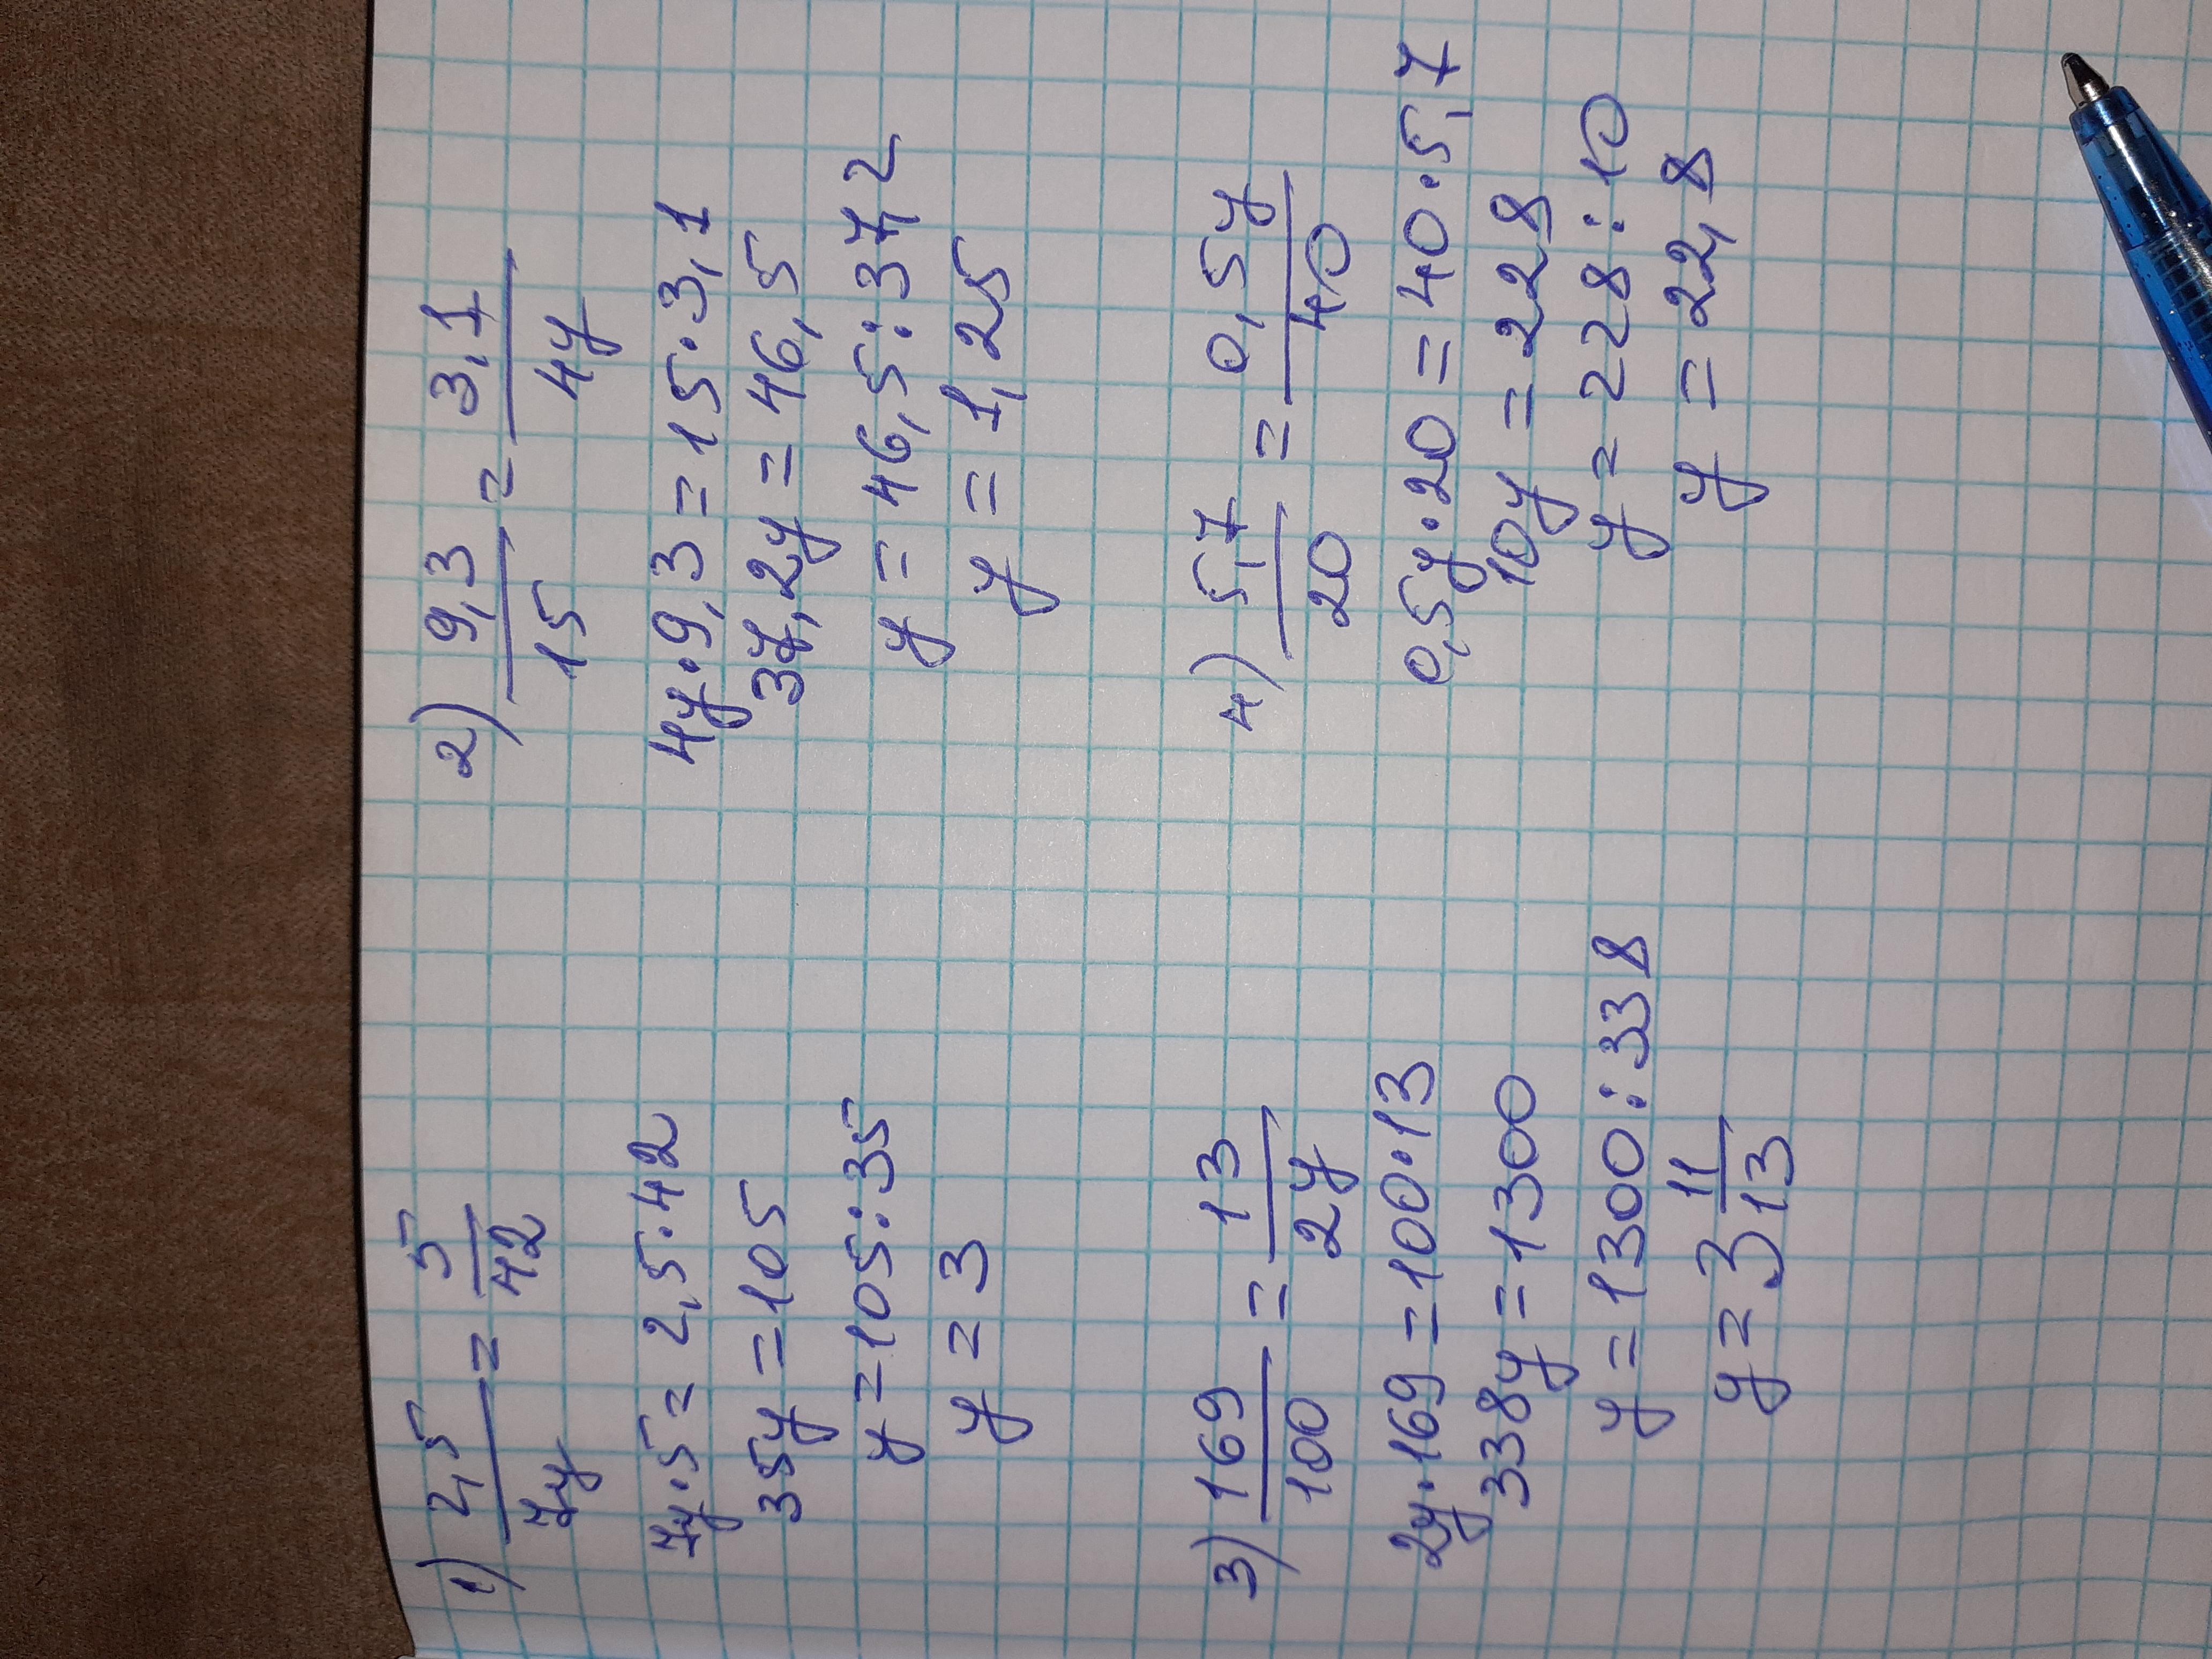 1) 2,5/7y = 5/42
7y·5 = 2,5·42
35y = 105
y = 105:35
y = 3
2) 9,3/15 = 3,1/4y
4y·9,3 = 15·3,1
37,2y = 46,5
y = 46,5:37,2
y = 1,25
3) 169/100 = 13/2y
2y·169 = 100·13
338y = 1300
y = 1300:338
y = 3 11/13
4) 5,7/20 = 0,5y/40
0,5y·20 = 40·5,7
10y = 228
y = 228:10
y = 22,8